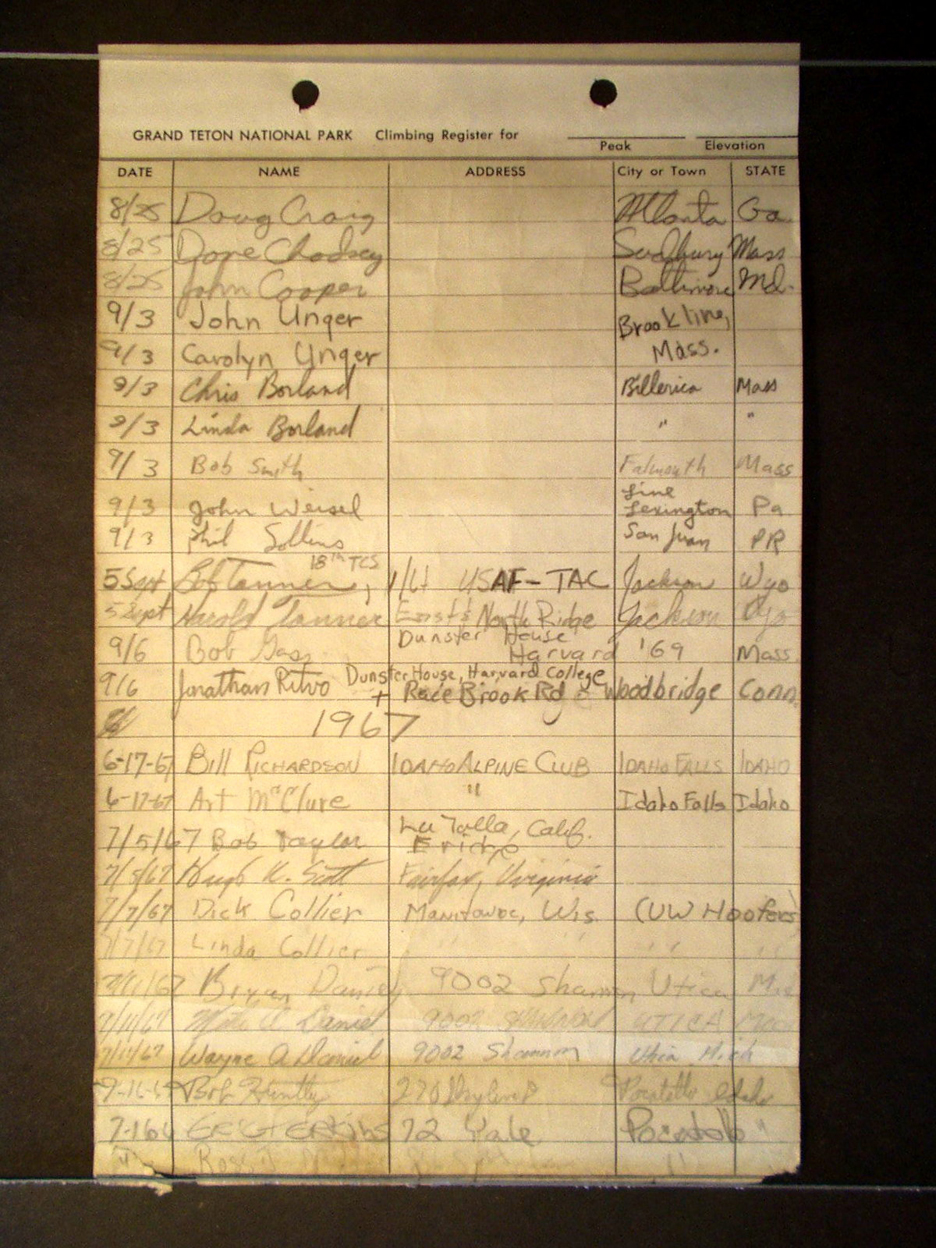 GRAND TETON NATIONAL PARK Climbing Register for
Peak Elevation
DATE NAME ADDRESS City or Town STATE
8/25 Doug Craig Atlanta Ga.
8/25 Dave Chodsey Sudbury Mass
8/25 John Cooper Baltimore Md.
9/3 John Unger Brookline,
9/3 Carolyn Unger Mass.
9/3 Chris Borland Billerica Mass
9/3 Linda Borland " "
9/3 Bob Smith Falmouth Mass
9/3 John Weisel Line Lexington Pa
9/3 Phil Sollins San Juan PR
18th TCS
5 Sept Bob Tanner, 1/Lt USAF-TAC Jackson Wyo
5 Sept Harold Tanner East & North Ridge Jackson Wyo
Dunster House
9/6 Bob Gass Harvard '69 Mass.
Dunster House, Harvard College
9/6 Jonathan Ritvo + Race Brook Rd Woodbridge Conn.
1967
6-17-67 Bill RICHARDSON IDAHO ALPINE CLUB IDAHO FALLS IDAHO
6-17-67 Art McClure " Idaho Falls Idaho
7/5/67 Bob Taylor Calif.
7/5/67 Hugh K. Scott Fairfax, Virginia
7/7/67 Dick Collier Manitowoc, Wis. (UW Hoofers)
7/7/67 Linda Collier " " " " "
Bryan Daniel 9002 Shannon Utica
Daniel 9002 SHANNON UTICA
Wayne A Daniel 9002 Shannon Utica Mich
Bob Huntley 270 Pocatello Idaho
72 Yale Pocatello "
"